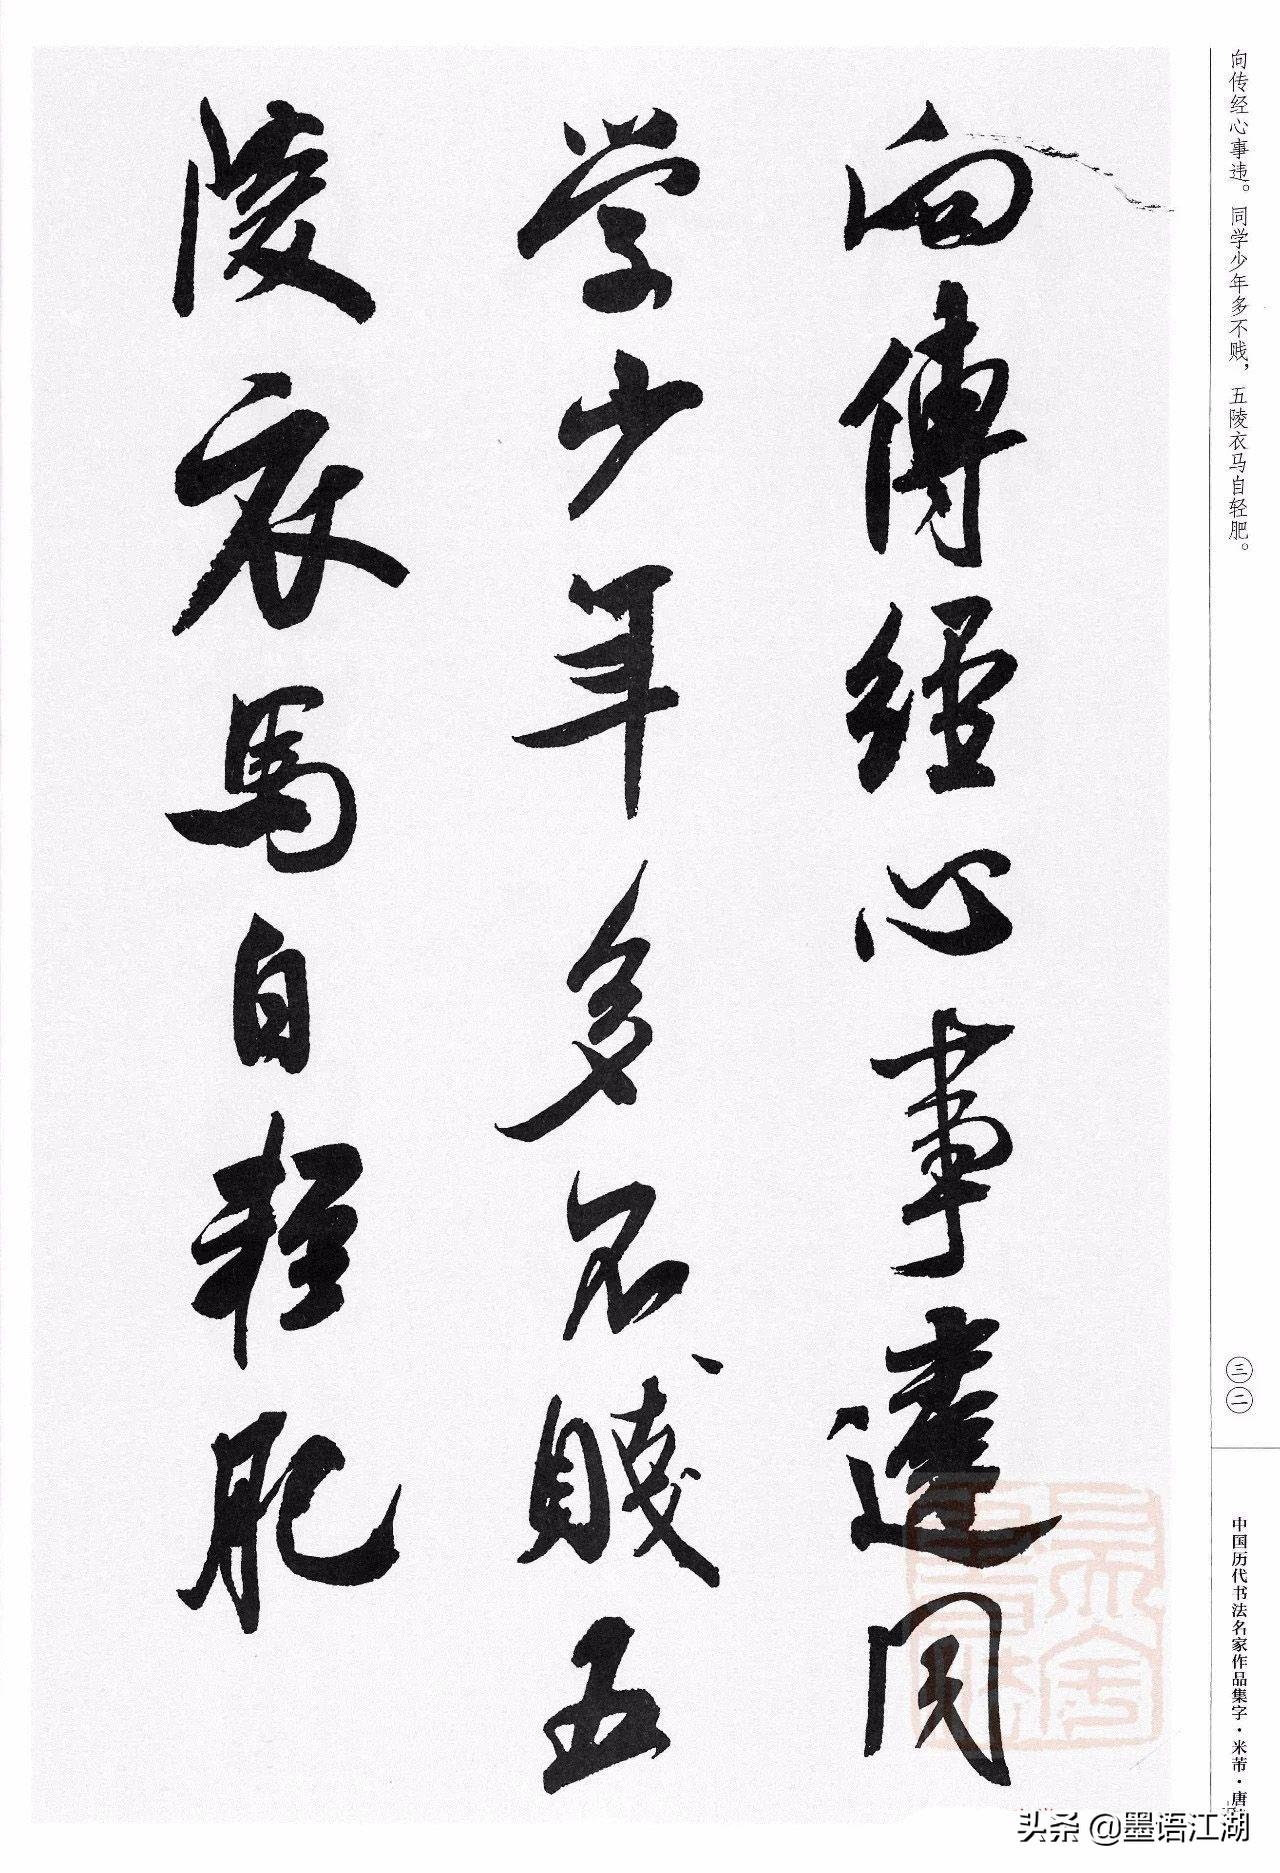 向传经心事违。同学少年多不贱，五陵衣马自轻肥。
向傳經心事違同
学少年多不賤五
陵衣馬自輕肥
三二
中国历代书法名家作品集字·米芾·唐
头条 @墨语江湖